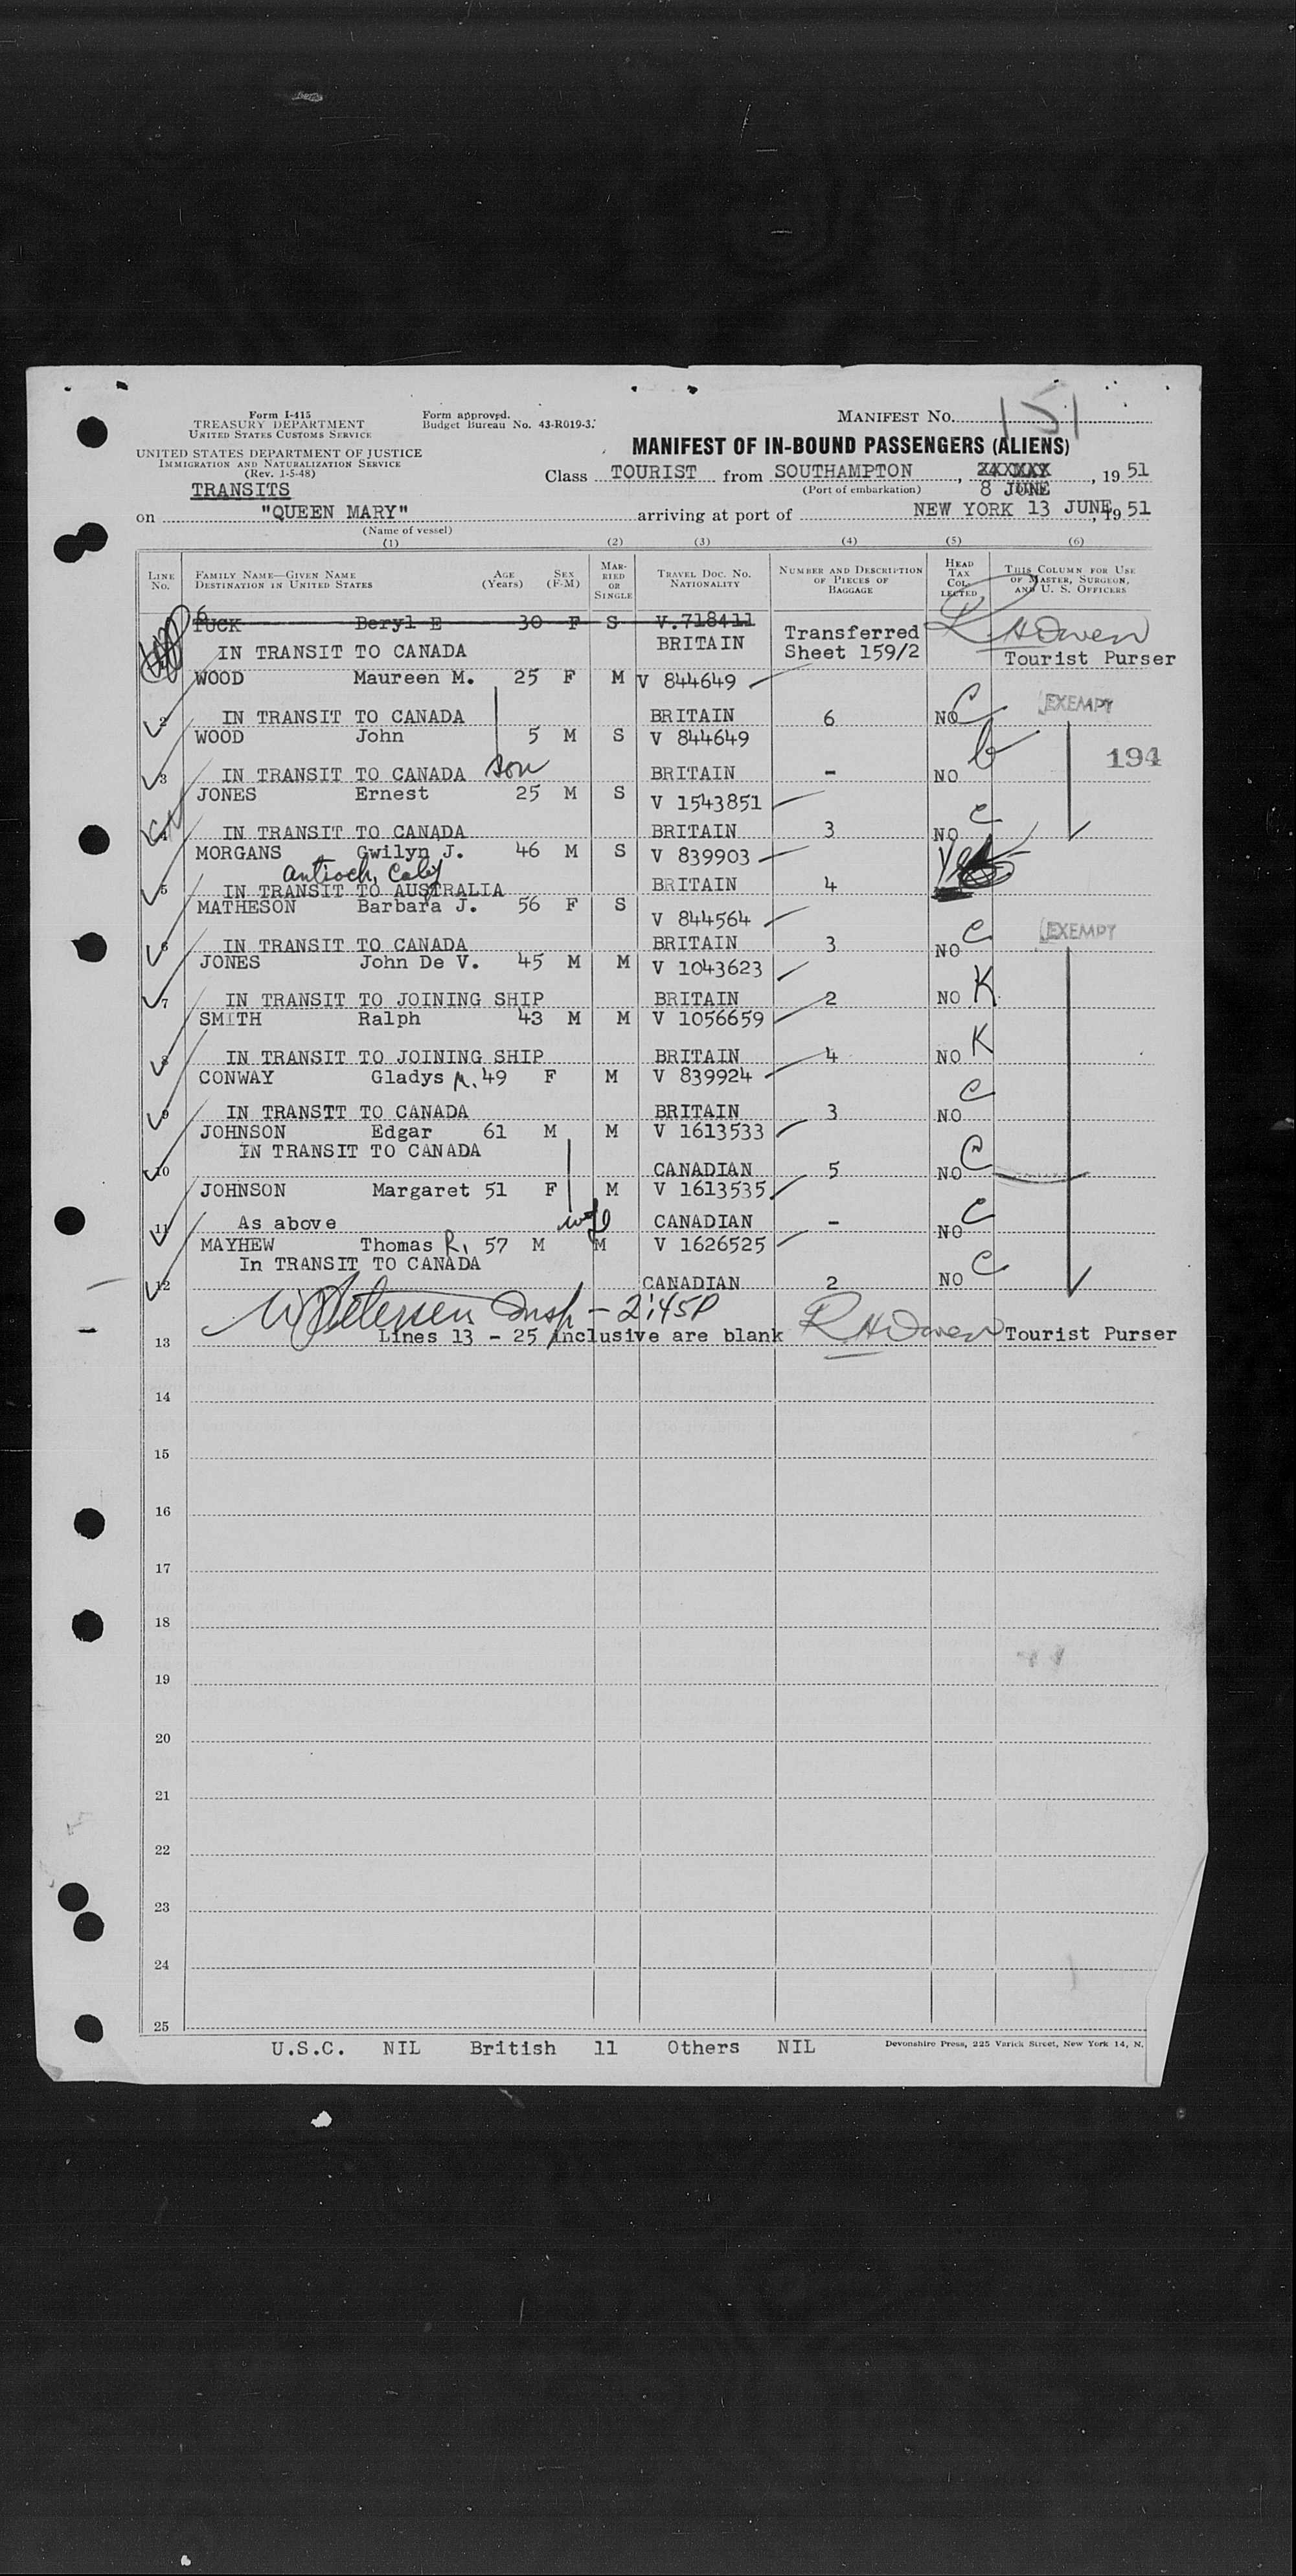 Form I-415
TREASURY DEPARTMENT
UNITED STATES CUSTOMS SERVICE
Form approved.
Budget Bureau No. 43-R019-3.
MANIFEST NO. 151
UNITED STATES DEPARTMENT OF JUSTICE
IMMIGRATION AND NATURALIZATION SERVICE
(Rev. 1-5-48)
MANIFEST OF IN-BOUND PASSENGERS (ALIENS)
Class TOURIST from SOUTHAMPTON, 8 JUNE, 19 51
(Port of embarkation)
TRANSITS
on "QUEEN MARY" arriving at port of NEW YORK 13 JUNE, 19 51
(Name of vessel)
(1) (2) (3) (4) (5) (6)
LINE NO. FAMILY NAME—GIVEN NAME DESTINATION IN UNITED STATES AGE (Years) SEX (F-M) MARRIED OR SINGLE TRAVEL DOC. NO. NATIONALITY NUMBER AND DESCRIPTION OF PIECES OF BAGGAGE HEAD TAX COLLECTED THIS COLUMN FOR USE OF MASTER, SURGEON, AND U. S. OFFICERS
TUCK Beryl E 30 F S V.718411
IN TRANSIT TO CANADA BRITAIN Transferred Sheet 159/2 R H Owen Tourist Purser
WOOD Maureen M. 25 F M V 844649
2 IN TRANSIT TO CANADA BRITAIN 6 NO C EXEMPT
WOOD John 5 M S V 844649
3 IN TRANSIT TO CANADA son BRITAIN - NO b 194
JONES Ernest 25 M S V 1543851
4 IN TRANSIT TO CANADA BRITAIN 3 NO C
MORGANS Gwilyn J. 46 M S V 839903
Antioch, Calif
5 IN TRANSIT TO AUSTRALIA BRITAIN 4 Yes
MATHESON Barbara J. 56 F S V 844564
6 IN TRANSIT TO CANADA BRITAIN 3 NO C EXEMPT
JONES John De V. 45 M M V 1043623
7 IN TRANSIT TO JOINING SHIP BRITAIN 2 NO K
SMITH Ralph 43 M M V 1056659
8 IN TRANSIT TO JOINING SHIP BRITAIN 4 NO K
CONWAY Gladys M. 49 F M V 839924
9 IN TRANSTT TO CANADA BRITAIN 3 NO C
JOHNSON Edgar 61 M M V 1613533
IN TRANSIT TO CANADA
10 CANADIAN 5 NO C
JOHNSON Margaret 51 F M V 1613535
11 As above wife CANADIAN - NO C
MAYHEW Thomas R. 57 M M V 1626525
In TRANSIT TO CANADA
12 CANADIAN 2 NO C
W Petersen Insp - 2:45P
13 Lines 13 - 25 inclusive are blank R H Owen Tourist Purser
14
15
16
17
18
19
20
21
22
23
24
25
U.S.C. NIL British 11 Others NIL Devonshire Press, 225 Varick Street, New York 14, N.